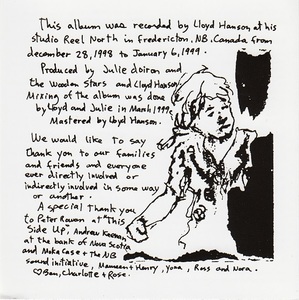 This album was recorded by Lloyd Hanson at his
studio Reel North in Fredericton, NB, Canada from
december 28, 1998 to January 6, 1999.
Produced by Julie doiron and
the Wooden Stars and Lloyd Hanson
Mixing of the album was done
by Lloyd and Julie in March 1999.
Mastered by Lloyd Hanson.
We would like to say
thank you to our families
and friends and everyone
ever directly involved or
indirectly involved in some way
or another.
A special thank you
to Peter Rowan at "This
Side Up", Andrew
at the bank of Nova Scotia
and Mike Case + the NB
sound initiative, Maureen + Henry, Yona, Ross and Nora.
♡ Ben, Charlotte + Rose.